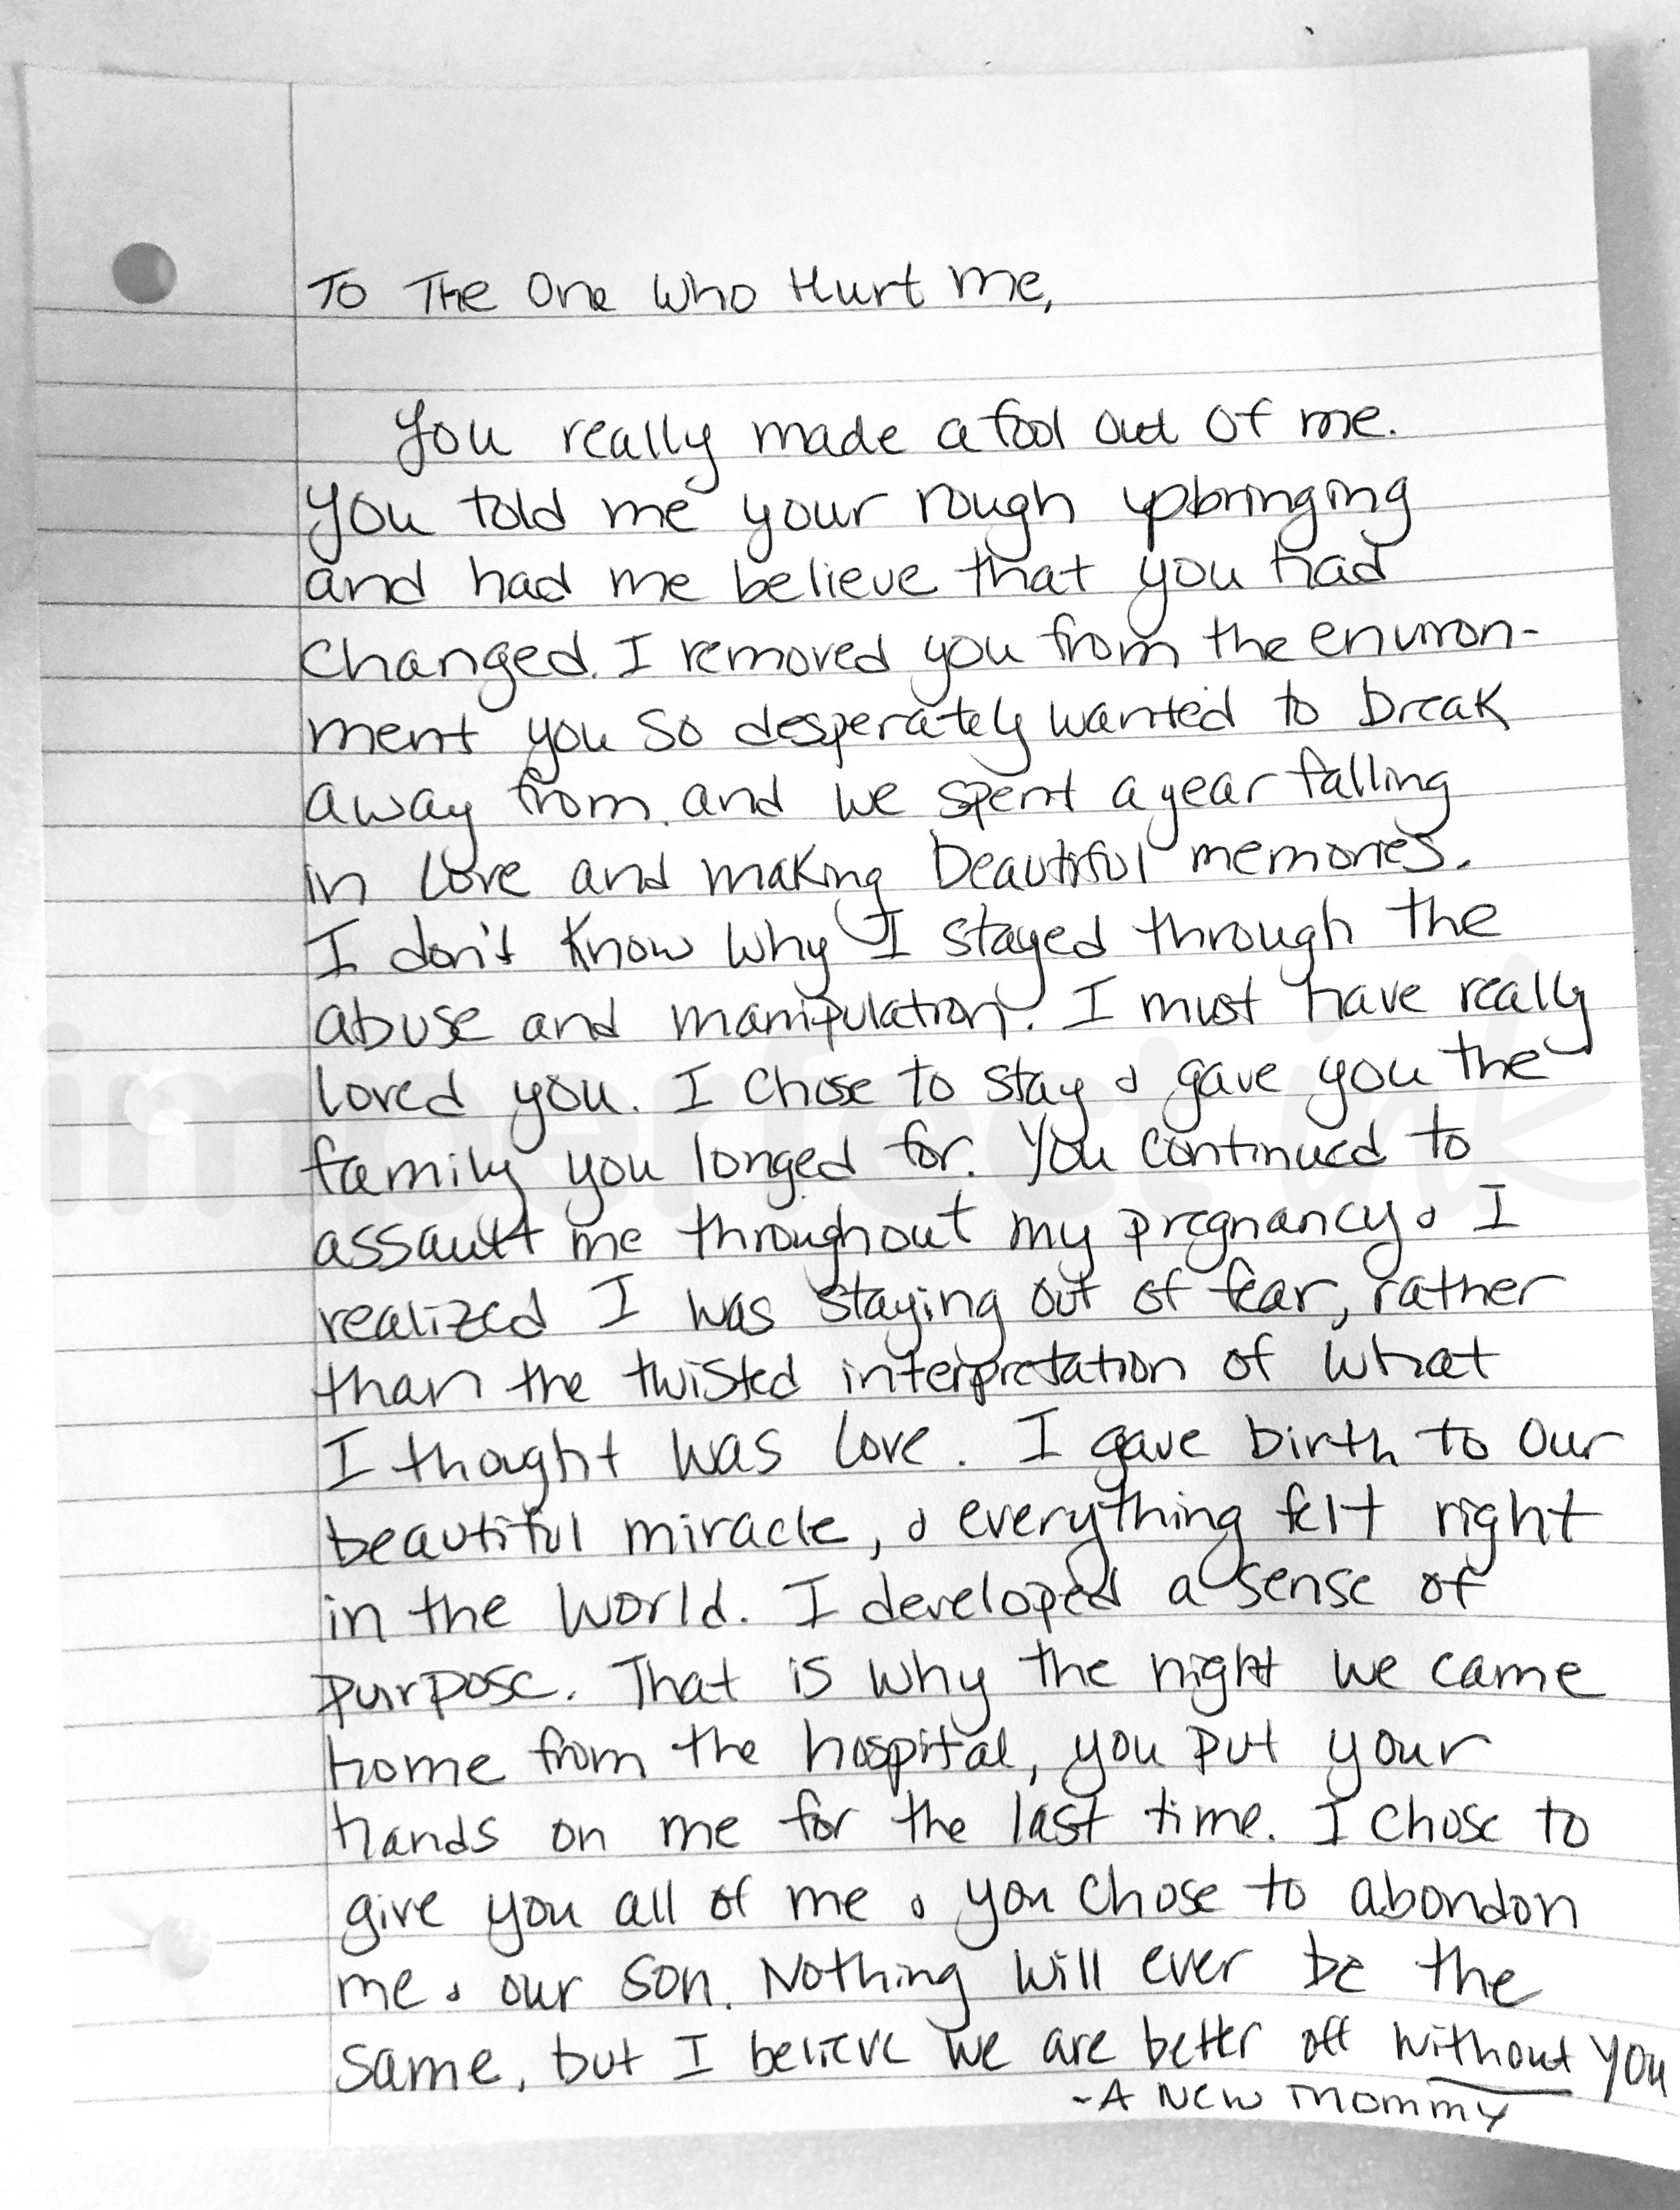 To The One Who Hurt me,
You really made a fool out of me.
You told me your rough upbringing
and had me believe that you had
changed. I removed you from the environ-
ment you so desperately wanted to break
away from, and we spent a year falling
in love and making beautiful memories.
I don't know why I stayed through the
abuse and manipulation. I must have really
loved you. I chose to stay & gave you the
family you longed for. You continued to
assault me throughout my pregnancy & I
realized I was staying out of fear, rather
than the twisted interpretation of what
I thought was love. I gave birth to our
beautiful miracle, & everything felt right
in the world. I developed a sense of
purpose. That is why the night we came
home from the hospital, you put your
hands on me for the last time. I chose to
give you all of me & you chose to abondon
me & our son. Nothing will ever be the
same, but I believe we are better off without you
-A New Mommy
imperfect ink